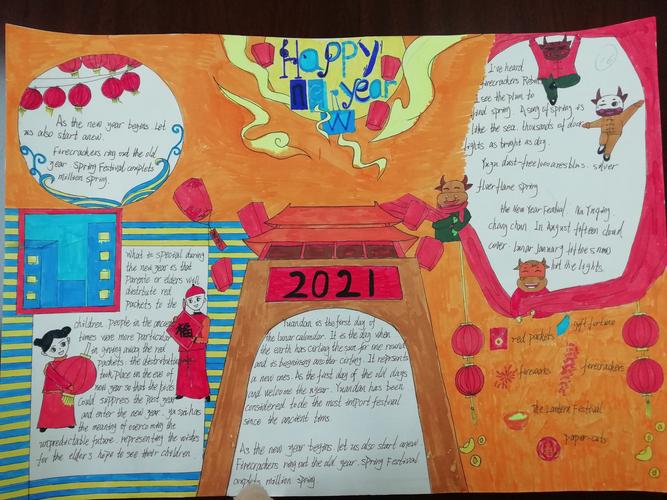 Happy
New year
As the new year begins. Let
us also start anew.
Firecrackers ring out the old
year. Spring Festival complets
million spring.
I've heard
firecrackers
I see the plum to
find spring. A song of spring is
like the sea. thousands of door
lights as bright as day
silver
flower flame spring
the New Year Festival.
In August fifteen cloud
cover. lunar January fifteen snow
hit the lights.
2021
What to special during
the new year is that
Parents or elders will
distribute red
pockets to the
children. people in the ancient
times were more particular
in giving away the red
packets the distributing
took place on the eve of
new year so that the kids
Could suppress the past year
and enter the new year. ya sui has
the meaning of overcoming the
unpredictable future. representing the wishes
for the elders hope to see their children
福
Yuandan is the first day of
the lunar calendar. It is the day when
the earth has cirling the sun for one round
and is beginning another cirling. It represents
a new ones. As the first day of the old days
and welcome the nyear. Yuandan has been
considered to be the most import festival
since the ancient tims.
As the new year begins. let us also start anew
Firecrackers ring out the old year. Spring Festival
complets million spring
red packets
gift fortune
fireworks
firecrackers
The Lantern Festival
paper-cuts